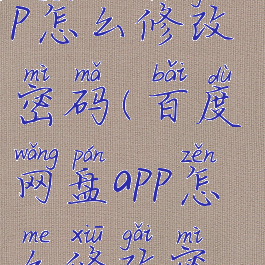 p怎么修改
mì mǎ bǎi dù
密码(百度
wǎng pán zěn
网盘app怎
me xiū gǎi mì
么修改密